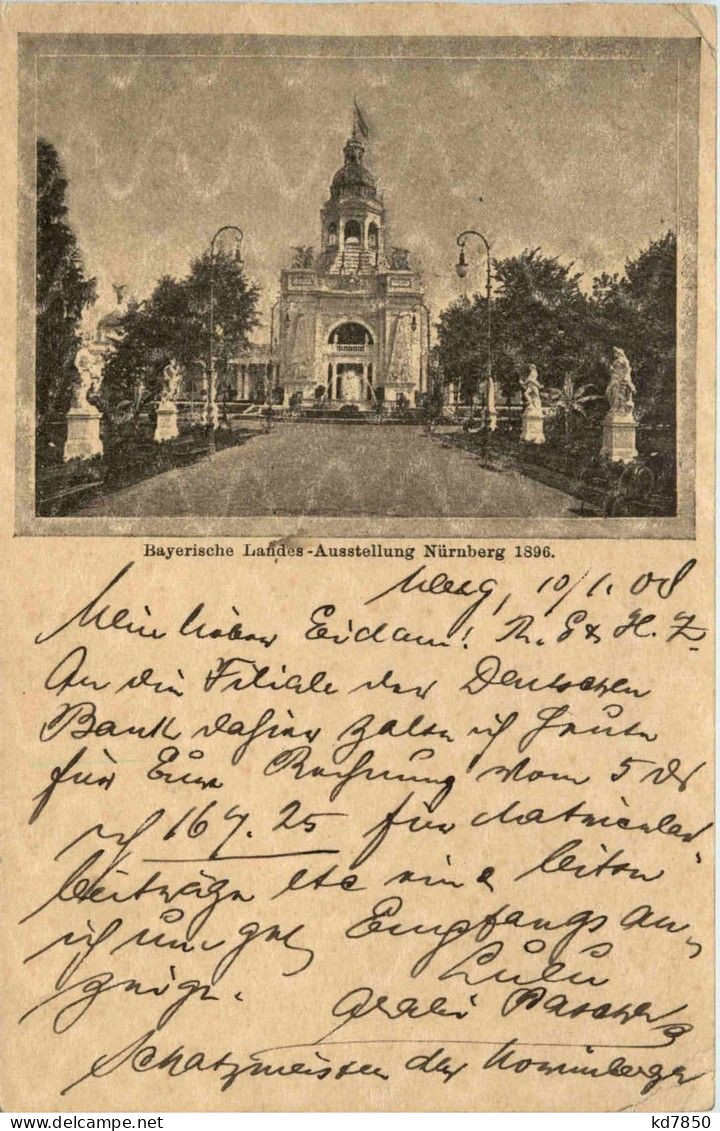 Bayerische Landes-Ausstellung Nürnberg 1896.
10/1. 08
Mein lieber Eidam!
An die Filiale der Deutschen
Bank dahier zalte ich heute
für Eure Rechnung vom 5 ds
167.25 für Matricular
beiträge etc ein & bitten
ich um gef Empfangs an-
zeige. Lulu
Schatzmeister der
kd7850